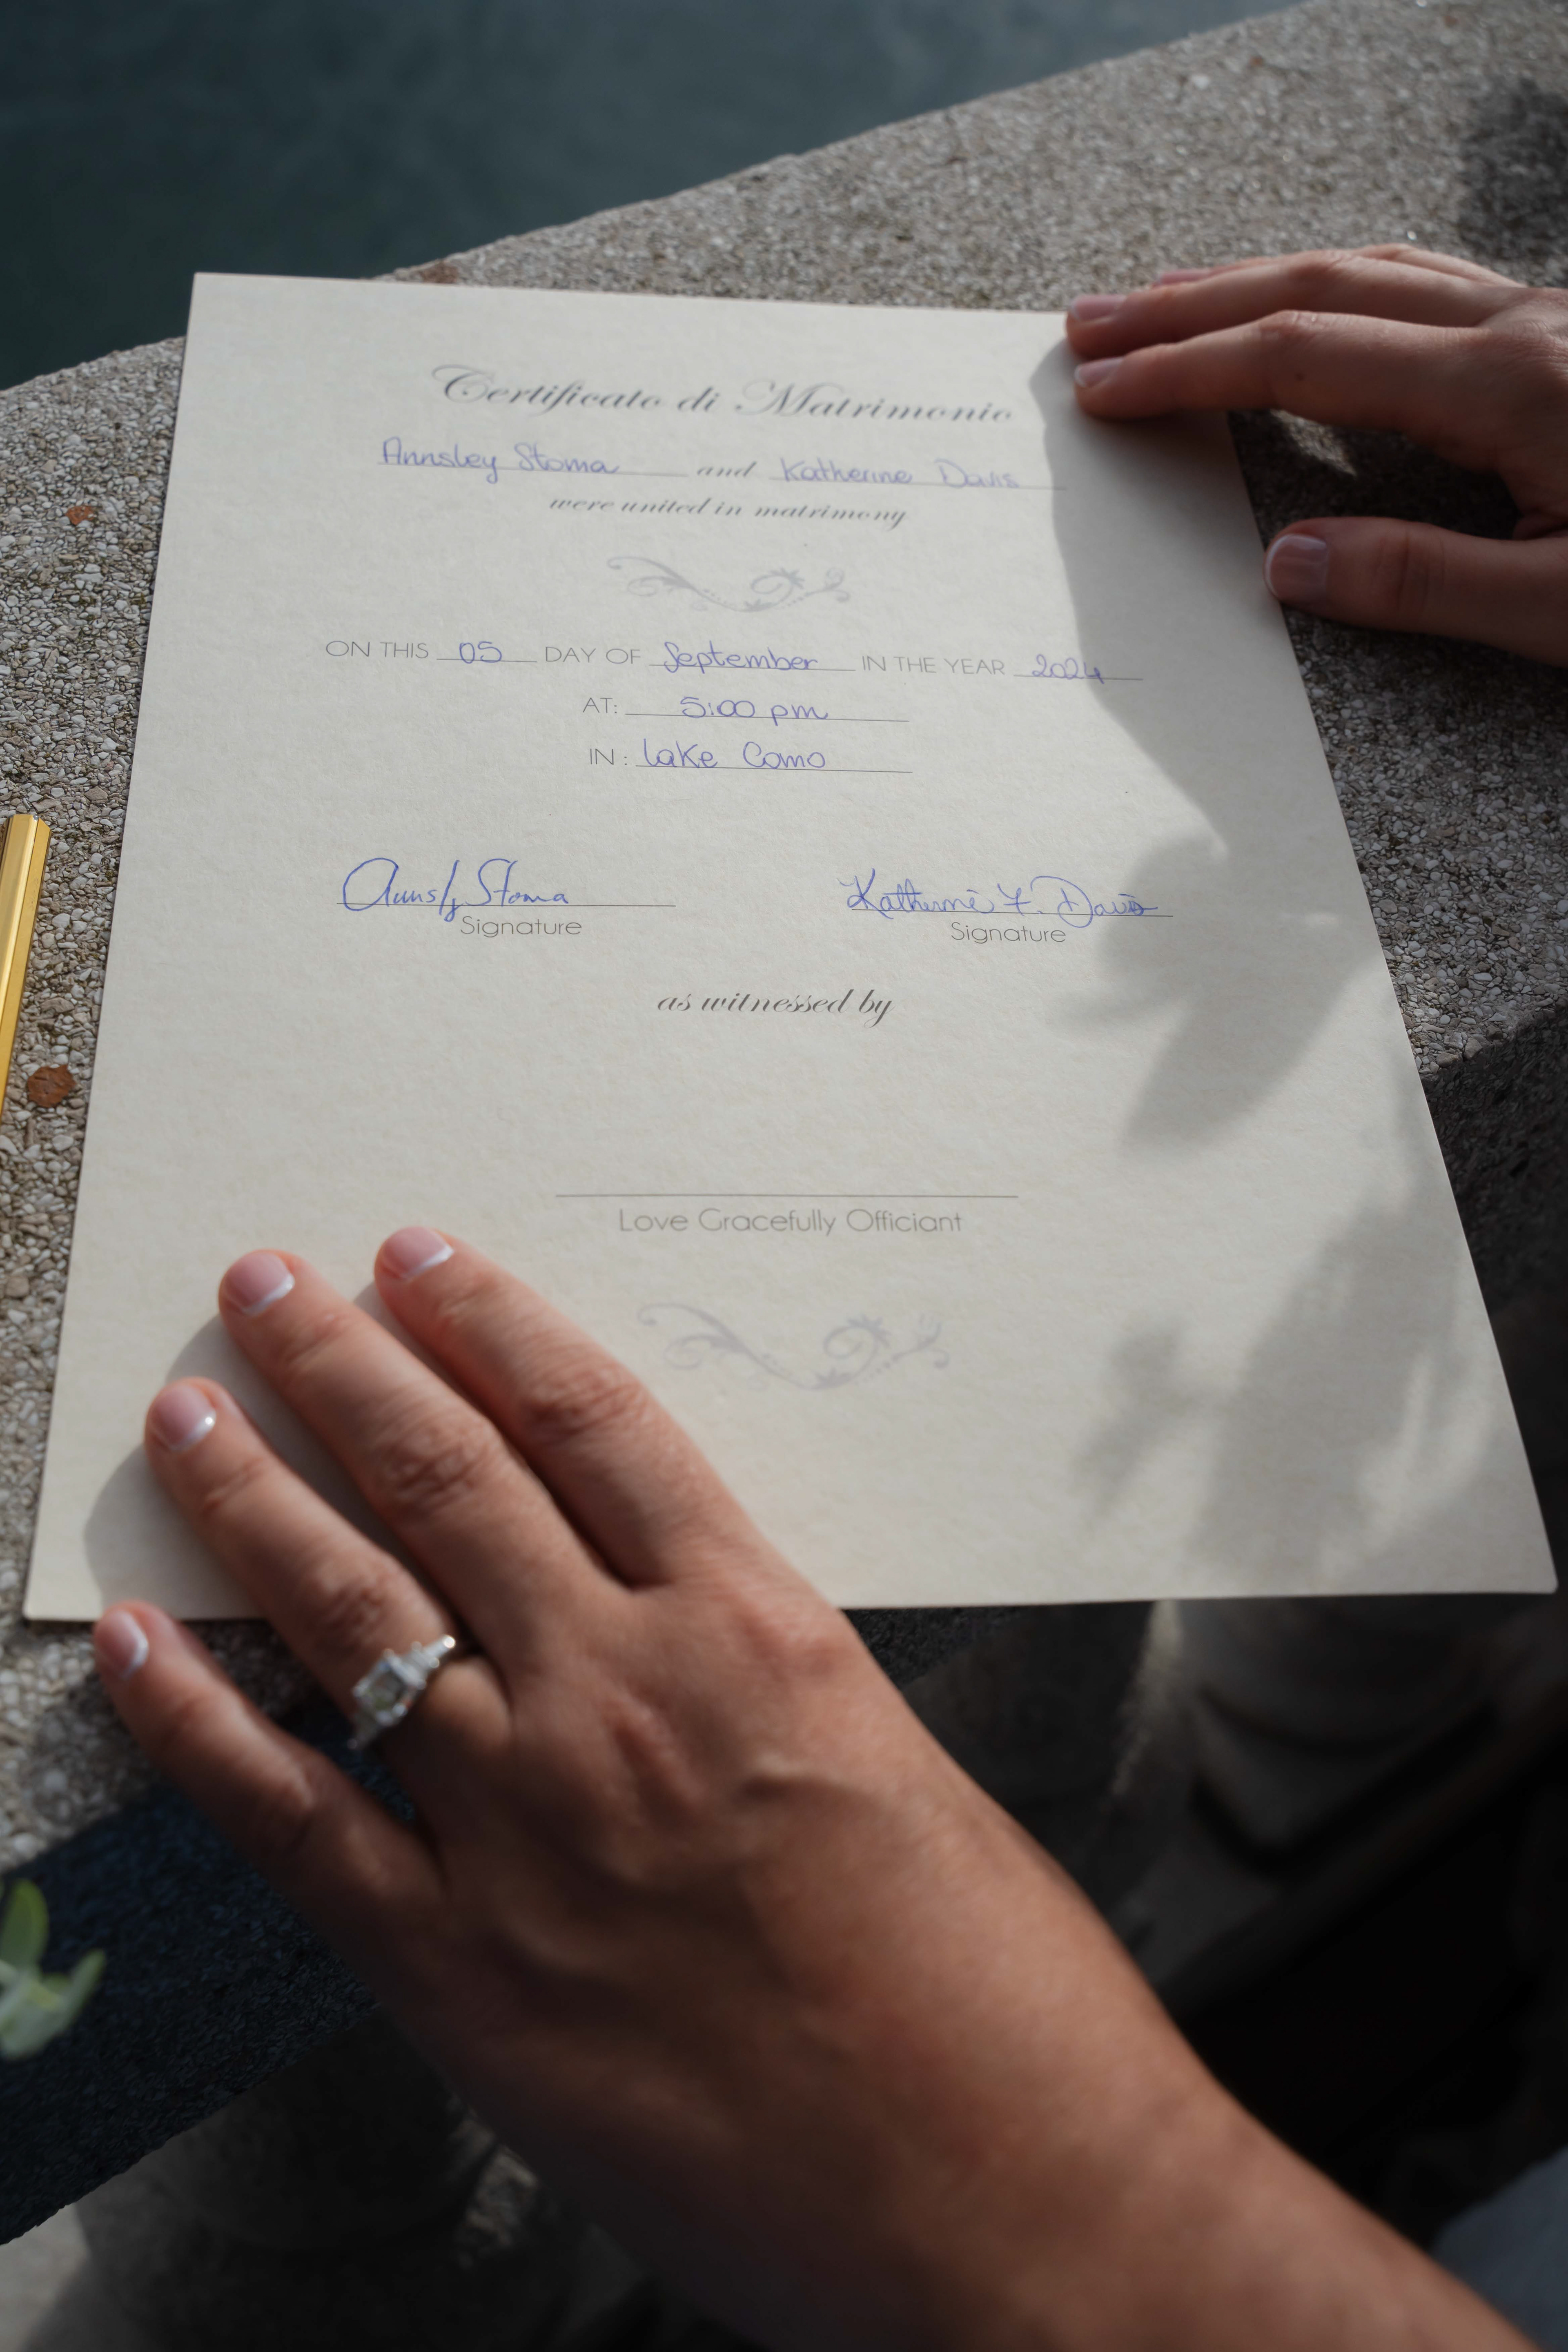 Certificato di Matrimonio
Annsley Stoma and Katherine Davis
were united in matrimony
ON THIS 05 DAY OF September IN THE YEAR 2024
AT: 5:00 pm
IN : Lake Como
Annsly Stoma Katherine F. Davis
Signature Signature
as witnessed by
Love Gracefully Officiant